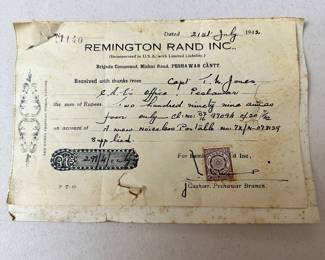 71140
Dated 21st July 1942
REMINGTON RAND INC.,
(Incorporated in U.S.A. with Limited Liability.)
Brigade Compound, Michni Road, PESHAWAR CANTT.
Received with thanks from Capt J. W. Jones
office, Peshawar
the sum of Rupees Two hundred ninety nine annas
four only
on account of A new Noiseless Portable no:
Supplied.
Rs. 299/4/-
For Remington Rand Inc.,
P T O
Cashier, Peshawar Branch.